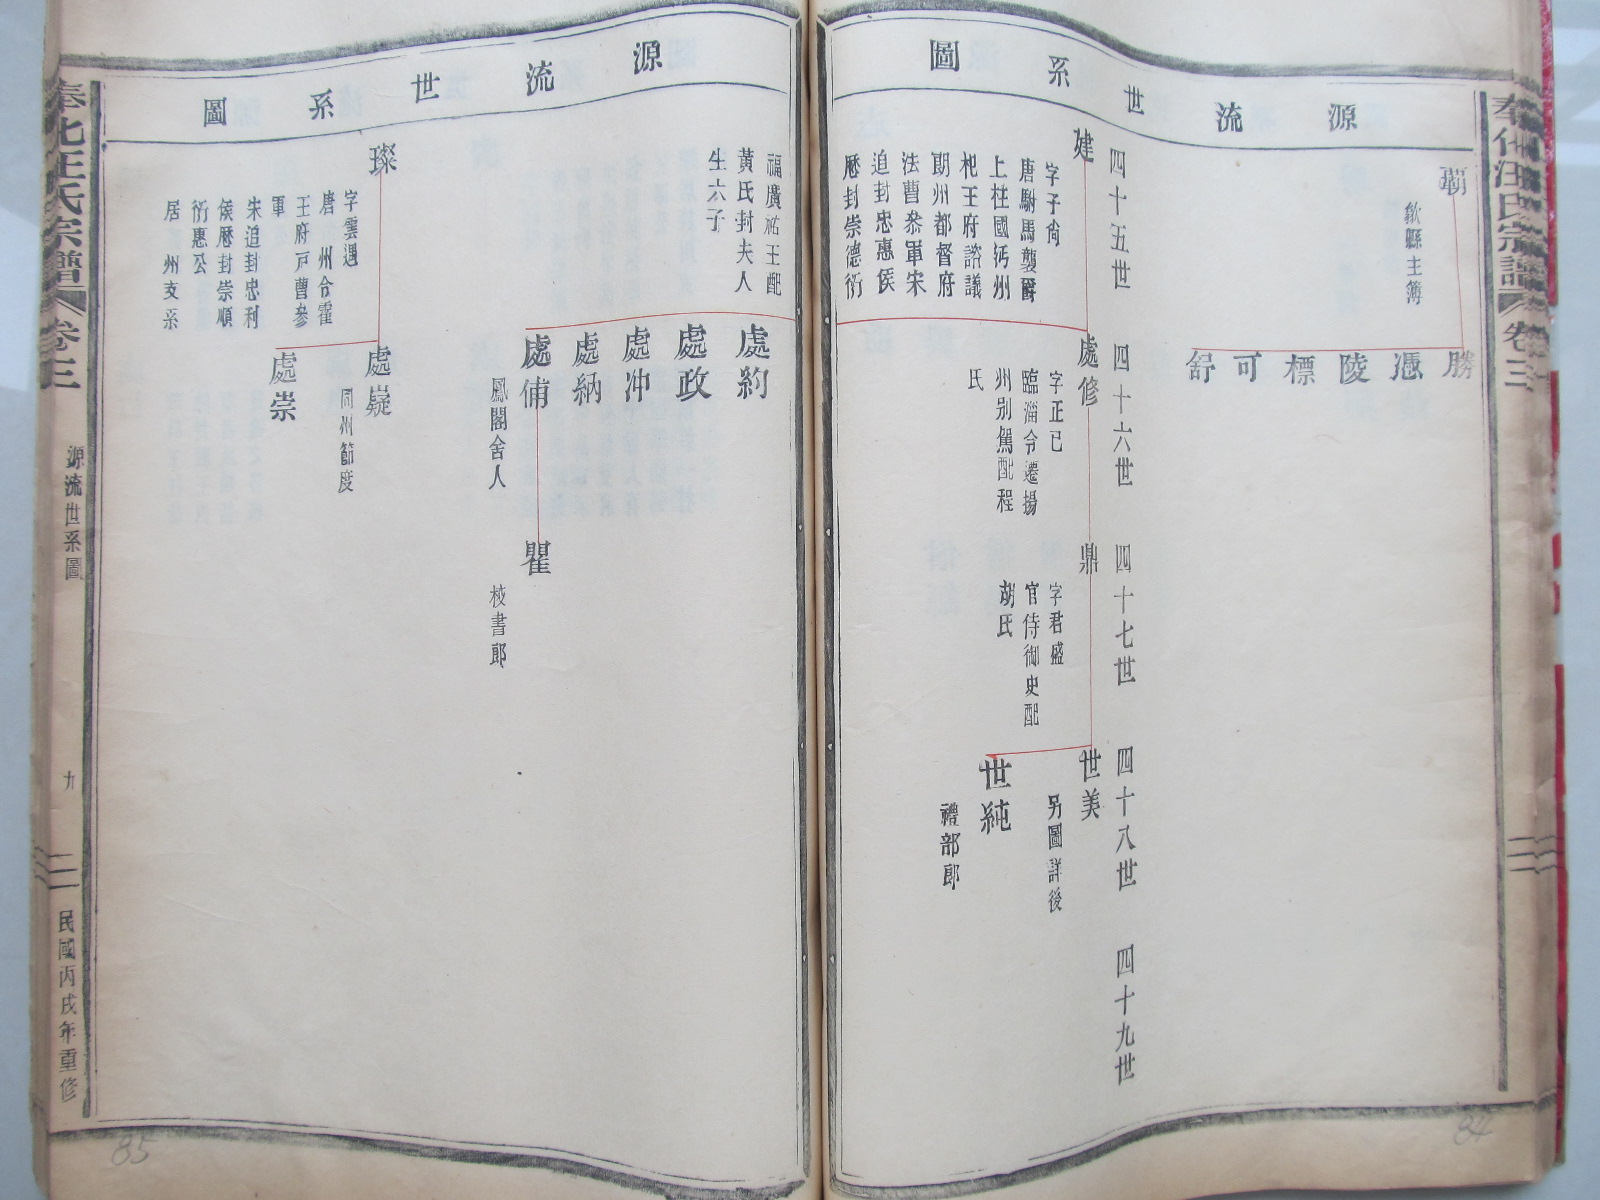 奉化汪氏宗譜 卷三
源流世系圖
霸
歙縣主簿
勝
憑
陵
標
可
舒
四十五世
四十六世
四十七世
四十八世
四十九世
建
字子尙
唐駙馬襲爵
上柱國沔州
杞王府諮議
朗州都督府
法曹叅軍宋
追封忠惠侯
歷封崇德衍
處修
字正已
臨淄令遷揚
州别駕配程
氏
鼎
字君盛
官侍御史配
胡氏
世美
另圖詳後
世純
禮部郎
84
源流世系圖
福廣祐王配
黃氏封夫人
生六子
處約
處政
處冲
處納
處侑
鳳閣舍人
瞿
校書郎
璨
字雲遇
唐 州令霍
王府戸曹參
軍
宋追封忠利
侯歷封崇順
衍惠公
居 州支系
處嶷
同州節度
處崇
奉化汪氏宗譜 卷三 源流世系圖 九 民國丙戌年重修
85